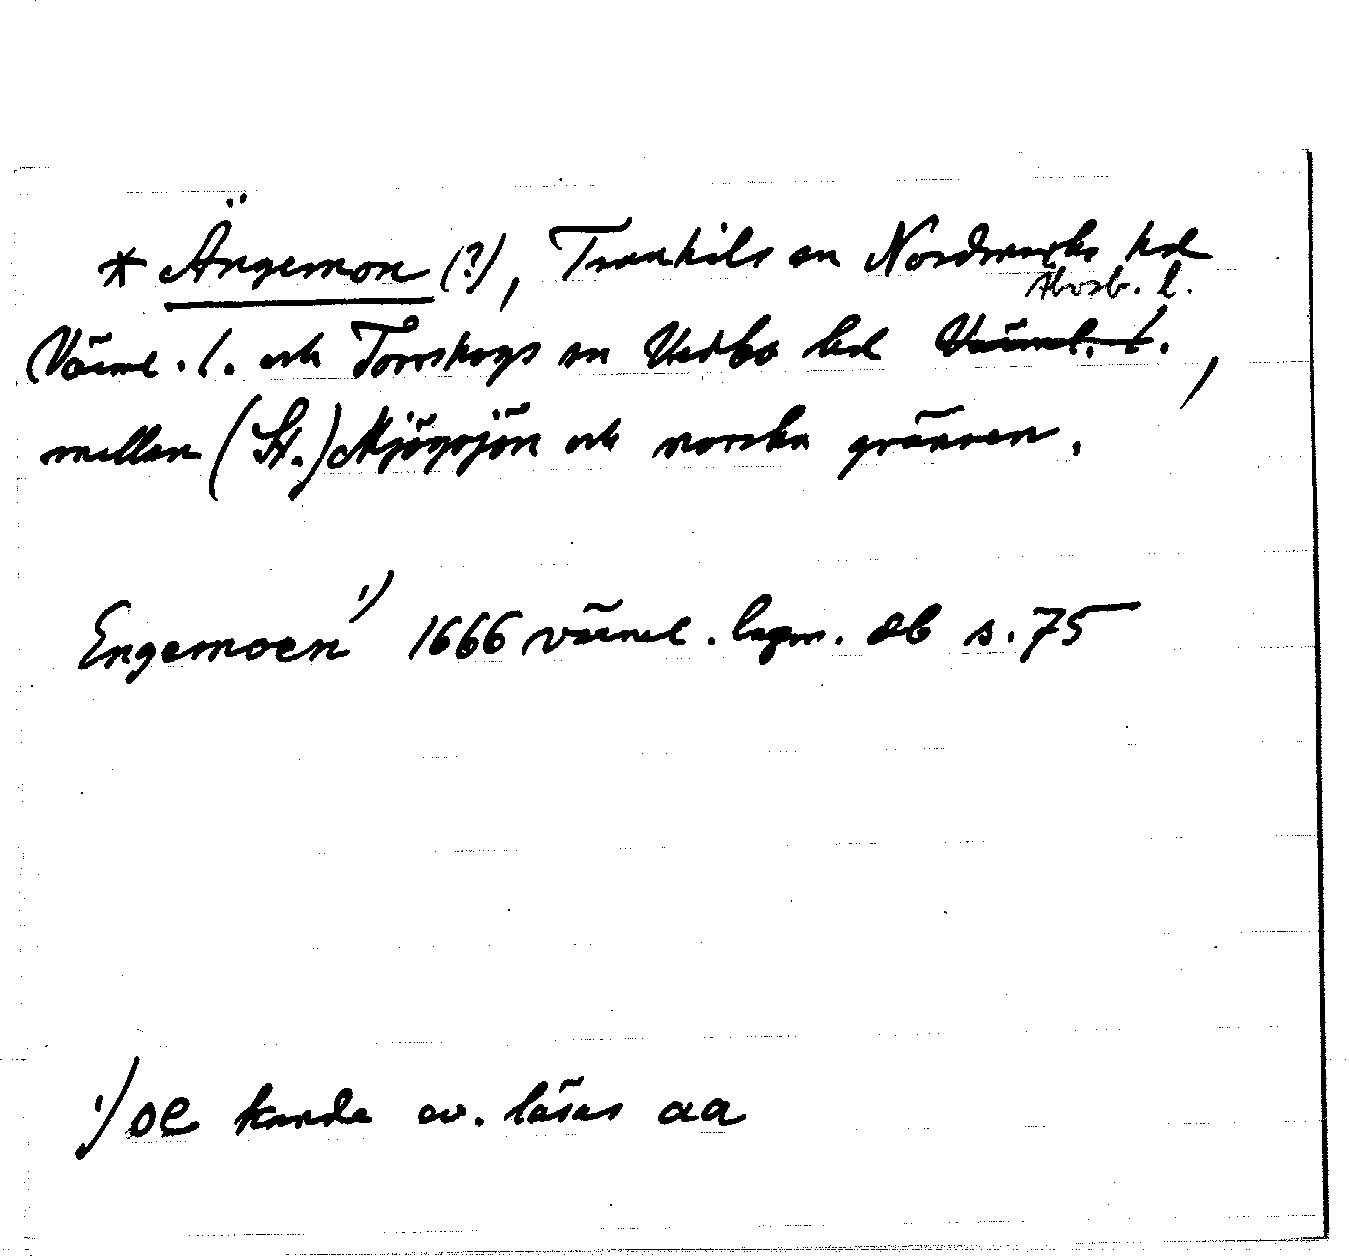 * Ängemon (?), Trankils sn Nordmarks hd
Älvsb. l.
(Värml. l. och Torrskogs sn Vedbo hd Värml. l. ,
mellan (St.) Mjögsjön och norska gränsen.
Engemoen 1) 1666 värml. lagm. db s. 75
1) oe kunde ev. läsas aa